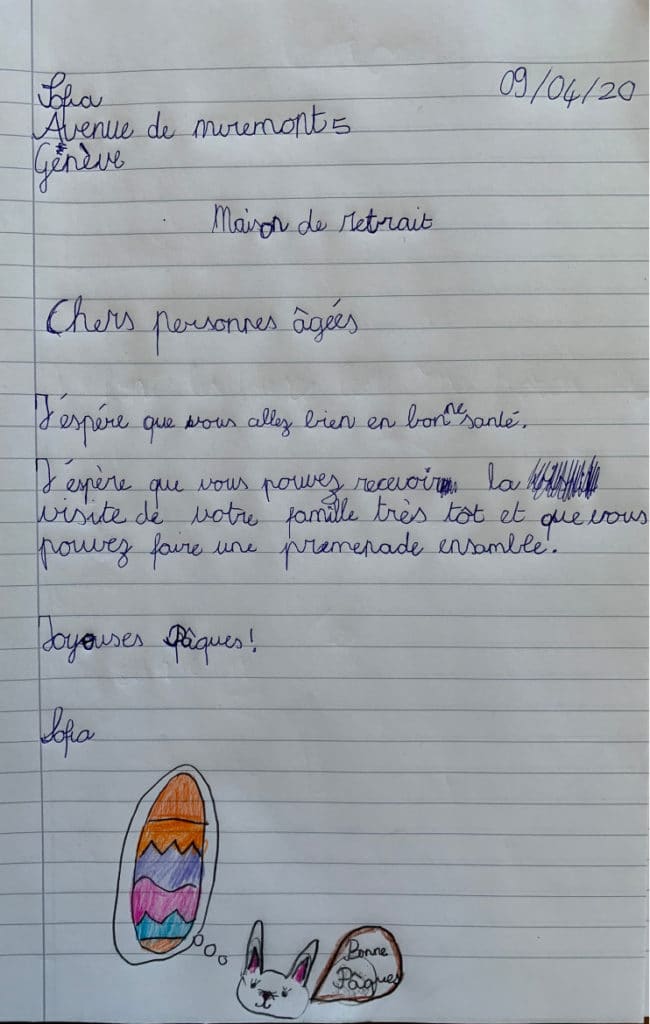 Sofia
09/04/20
Avenue de miremont 5
Genève
Maison de retrait
Chers personnes âgées
J'éspére que vous allez bien en bonne santé.
J'éspère que vous pouvez recevoir la
visite de votre famille très tot et que vous
pouvez faire une promenade ensamble.
Joyeuses Pâques!
Sofia
Bonne
Pâques